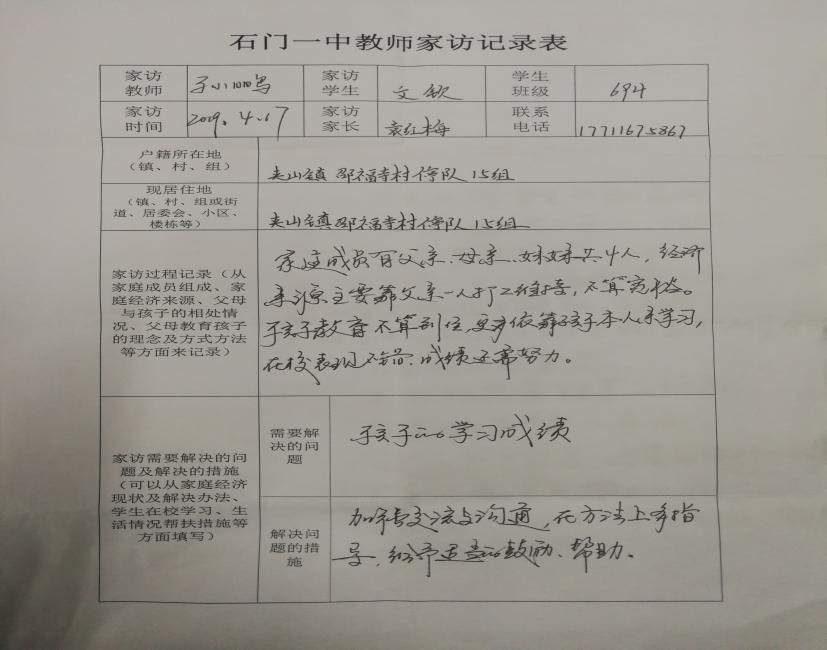 石门一中教师家访记录表
家访教师 家访学生 文敏 学生班级 694
家访时间 2019.4.17 家访家长 袁红梅 联系电话 17711675867
户籍所在地
（镇、村、组）
夹山镇 邵福寺村 队15组
现居住地
（镇、村、组或街
道、居委会、小区、
楼栋等）
夹山镇邵福寺村 队15组
家访过程记录（从
家庭成员组成、家
庭经济来源、父母
与孩子的相处情
况、父母教育孩子
的理念及方式方法
等方面来记录）
家庭成员有父亲、母亲、妹妹共4人，经济
来源主要靠父亲一人打工维持，不算宽裕。
孩子教育不算到位，更多依靠孩子本人学习，
在校表现不错，成绩还需努力。
家访需要解决的问
题及解决的措施
（可以从家庭经济
现状及解决办法、
学生在校学习、生
活情况帮扶措施等
方面填写）
需要解
决的问
题
孩子的学习成绩
解决问
题的措
施
加强交流与沟通，在方法上多指
导，给予适当的鼓励、帮助。